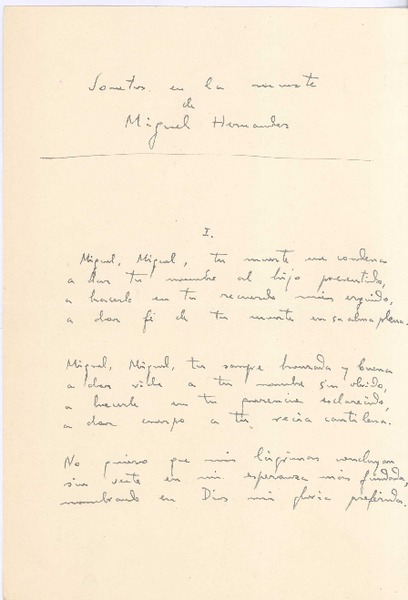 Sonetos en la muerte
de
Miguel Hernandez
I.
Miguel, Miguel, tu muerte me condena
a dar tu nombre al hijo presentido,
a hacerlo en tu recuerdo más erguido,
a dar fé de tu muerte en su alma plena.
Miguel, Miguel, tu sangre honrada y buena
a dar vida a tu nombre sin olvido,
a hacerte en tu presencia esclarecido,
a dar cuerpo a tu recia cantilena.
No quiero que mis lágrimas concluyan
sin verte en mi esperanza más fundada,
nombrando en Dios mi gloria preferida.